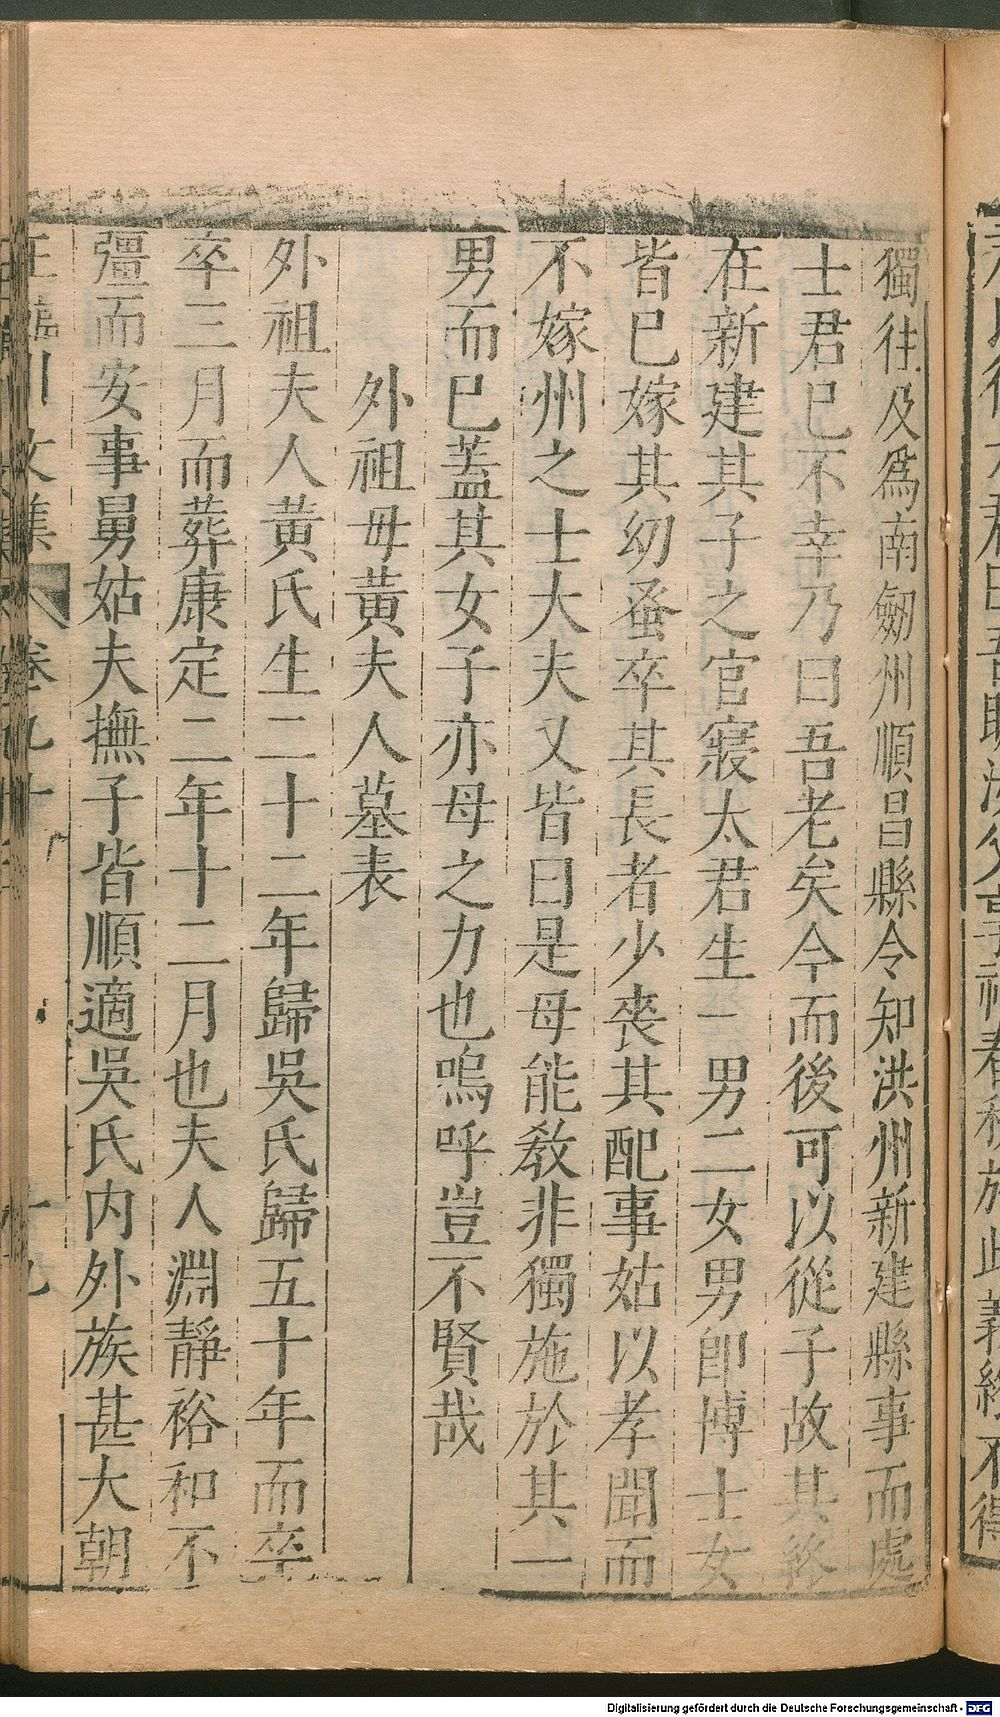 獨往及爲南劒州順昌縣令知洪州新建縣事而處
士君已不幸乃曰吾老矣今而後可以從子故其終
在新建其子之官寢太君生一男二女男卽博士女
皆已嫁其幼蚤卒其長者少喪其配事姑以孝聞而
不嫁州之士大夫又皆曰是母能敎非獨施於其一
男而已蓋其女子亦母之力也嗚呼豈不賢哉
外祖母黃夫人墓表
外祖夫人黃氏生二十二年歸吳氏歸五十年而卒
卒三月而葬康定二年十二月也夫人淵靜裕和不
彊而安事舅姑夫撫子皆順適吳氏内外族甚大朝
王臨川文集 卷九十 十九
Digitalisierung gefördert durch die Deutsche Forschungsgemeinschaft - DFG